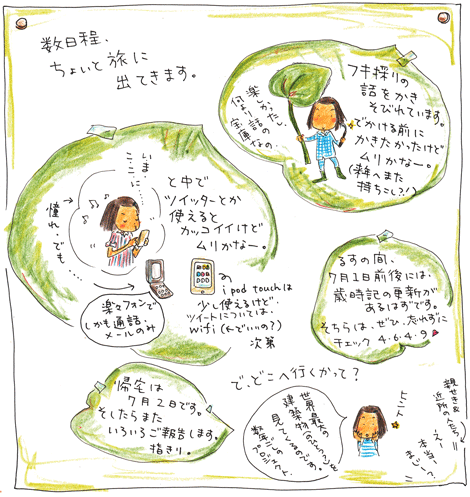 数日程、
ちょいと旅に
出てきます。
フキ採りの
話をかき
そびれています。
でかける前に
かきたかったけど
ムリかなー。
(来年へまた
持ちこし?!)
楽しかったし、
何より話の
宝庫なの
いま
ここに…
憧れ…でも…
と中で
ツイッターとか
使えると
カッコイイけど
ムリかなー。
楽々フォンで
しかも通話、
メールのみ
ipod touchは
少し使えるけど、
ツイートについては、
wifi(Kでいいの?)
次第
るすの間、
7月1日前後には、
歳時記の更新が
あるはずです。
そちらは、ぜひ、忘れずに
チェック 4・6・4・9
帰宅は
7月2日です。
そしたらまた
いろいろご報告します。
指きり。
で、どこへ行くかって?
世界最大の
建築物の
見てくるのです。
数年ごしの
プロジェクト
ヒント
親せき&
近所の
えー
本当ー?
まじ